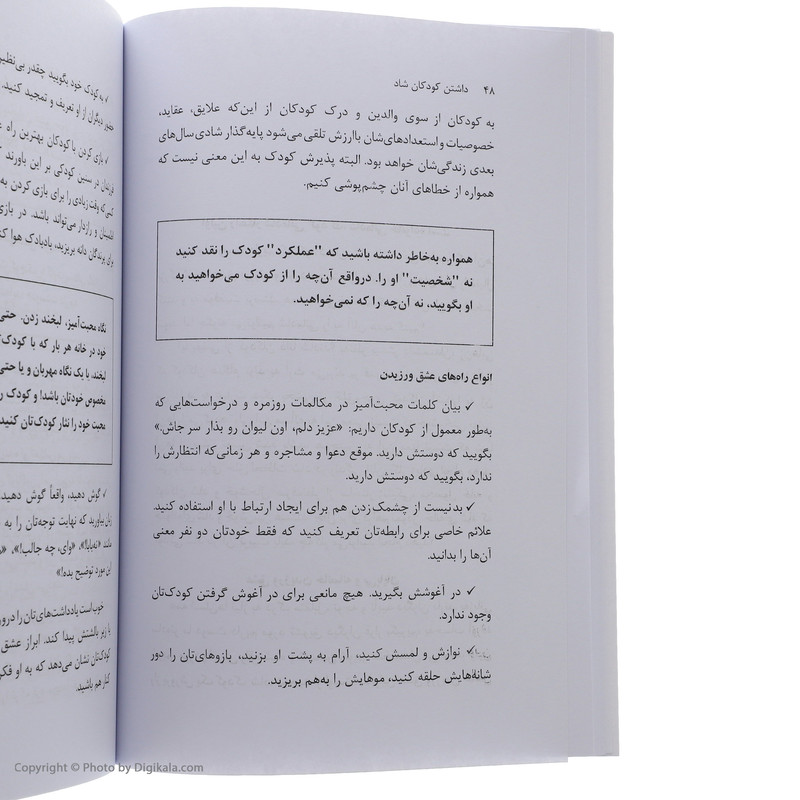 ۴۸ داشتن کودکان شاد
به کودکان از سوی والدین و درک کودکان از این‌که علایق، عقاید،
خصوصیات و استعدادهای‌شان باارزش تلقی می‌شود پایه‌گذار شادی سال‌های
بعدی زندگی‌شان خواهد بود. البته پذیرش کودک به این معنی نیست که
همواره از خطاهای آنان چشم‌پوشی کنیم.
همواره به‌خاطر داشته باشید که "عملکرد" کودک را نقد کنید
نه "شخصیت" او را. درواقع آن‌چه را از کودک می‌خواهید به
او بگویید، نه آن‌چه را که نمی‌خواهید.
انواع راه‌های عشق ورزیدن
✓ بیان کلمات محبت‌آمیز در مکالمات روزمره و درخواست‌هایی که
به‌طور معمول از کودکان داریم: «عزیز دلم، اون لیوان رو بذار سر جاش.»
بگویید که دوستش دارید. موقع دعوا و مشاجره و هر زمانی‌که انتظارش را
ندارد، بگویید که دوستش دارید.
✓ بدنیست از چشمک‌زدن هم برای ایجاد ارتباط با او استفاده کنید.
علائم خاصی برای رابطه‌تان تعریف کنید که فقط خودتان دو نفر معنی
آن‌ها را بدانید.
✓ در آغوشش بگیرید. هیچ مانعی برای در آغوش گرفتن کودک‌تان
وجود ندارد.
✓ نوازش و لمسش کنید، آرام به پشت او بزنید، بازوهای‌تان را دور
شانه‌هایش حلقه کنید، موهایش را به‌هم بریزید.
✓ به کودک خود بگویید چقدر بی‌نظیر
حضور دیگران از او تعریف و تمجید کنید.
✓ بازی کردن با کودکان بهترین راه
فرزندان در سنین کودکی بر این باورند
کسی‌که وقت زیادی را برای بازی کردن به
اطمینان و رازدار می‌تواند باشد. در بازی
برای پرندگان دانه بریزید، بادبادک هوا کنید
نگاه محبت‌آمیز، لبخند زدن. حتی
خود در خانه هر بار که با کودک
لبخند، با یک نگاه مهربان و یا حتی
مخصوص خودتان باشد! و کودک
محبت خود را نثار کودک‌تان کنید
✓ گوش دهید، واقعاً گوش دهید
زبان بیاورید که نهایت توجه‌تان را به
مانند «نه‌بابا!»، «وای، چه جالب!»،
این مورد توضیح بده!»
خوب است یادداشت‌های‌تان را درون
یا زیر بالشتش پیدا کند. ابراز عشق
کودک‌تان نشان می‌دهد که به او فکر
کنار هم باشید.
Copyright © Photo by Digikala.com